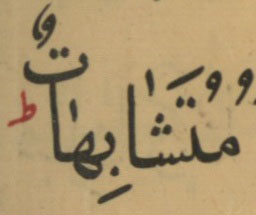 مُتَشَابِهَاتٌ ط